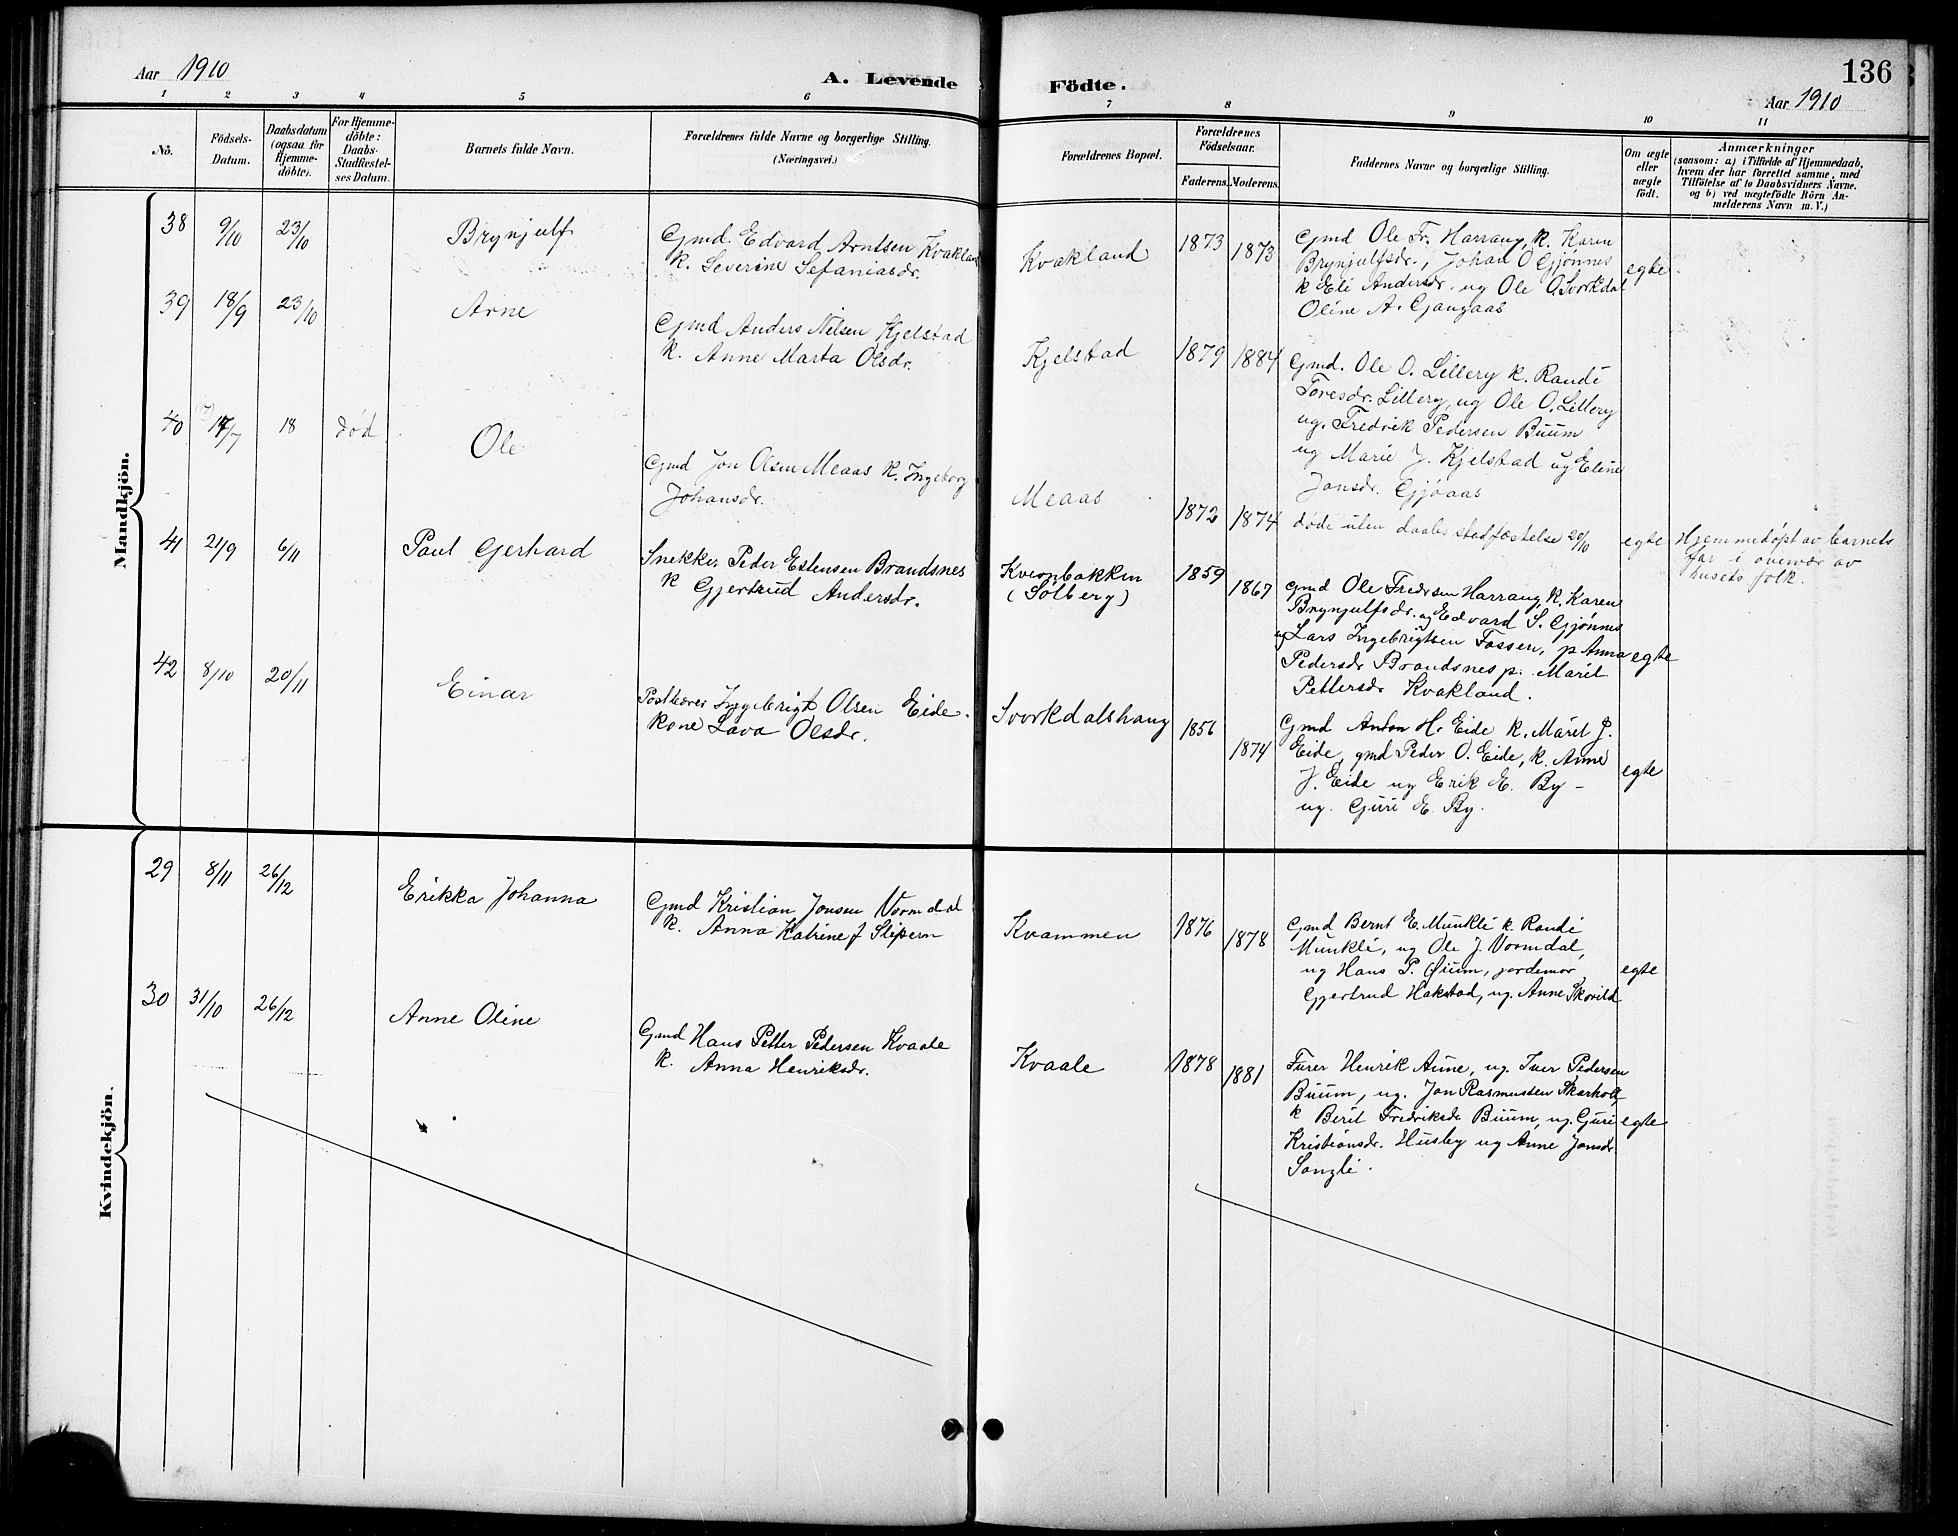 Aar 1910
A. Levende Födte.
136
Aar 1910
1 2 3 4 5 6 7 8 9 10 11
Nö.
Födsels-
Datum.
Daabsdatum
(ogsaa for
Hjemme-
döbte).
For Hjemme-
döbte:
Daabs-
Stadfæstel-
ses Datum.
Barnets fulde Navn.
Forældrenes fulde Navne og borgerlige Stilling.
(Næringsvei.)
Forældrenes Bopæl.
Forældrenes
Födselsaar.
Faderens. Moderens.
Faddernes Navne og borgerlige Stilling.
Om ægte
eller
uægte
födt.
Anmærkninger
(saasom: a) i Tilfælde af Hjemmedaab,
hvem der har forrettet samme, med
Tilföielse af to Daabsvidners Navne.
og b) ved uægtefödte Börn An-
melderens Navn m. V.)
Mandkjön.
38 9/10 23/10 Brynjulf
Gmd. Edvard Arntsen Kvakland
k. Severine Sefaniasdr.
Kvakland 1873 1873
Gmd Ole Fr. Harrang, k. Karen
Brynjulfsdr., Johan O Gjönnes
k Eli Andersdr. ug Ole O. Svorkdal
Oline A. Gangaas
egte
39 18/9 23/10 Arne
Gmd Anders Nilsen Kjelstad
k. Anne Marta Olsdr.
Kjelstad 1879 1884
Gmd. Ole O. Lillery k. Randi
Toresdr. Lillery, ug Ole O. Lillery
ug. Fredrik Pedersen Buum
ug Marie J. Kjelstad ug Eline
Jonsdr. Gjöaas
40 17/7 18 död Ole
Gmd Jon Olsen Meaas k. Ingeborg
Johansdr.
Meaas 1872 1874
döde uten daabs stadfæstelse 20/10
egte
Hjemmedöpt av barnets
far i overvær av
husets folk.
41 21/9 6/11 Paul Gerhard
Snekker Peder Estensen Brandsnes
k Gjertrud Andersdr.
Kvernbakken
(Solberg)
1859 1867
gmd Ole Fredrsen Harrang, k. Karen
Brynjulfsdr. ug Edvard S. Gjönnes
ug Lars Ingebrigtsen Fossen, p Anna
Pedersdr Brandsnes p. Marit
Pettersdr Kvakland.
egte
42 8/10 20/11 Einar
Postbærer Ingebrigt Olsen Eide.
kone Lava Olsdr.
Svorkdalshaug 1856 1874
Gmd Anton H. Eide k. Marit J.
Eide, gmd Peder O. Eide, k. Anne
J. Eide ug Erik E. By -
ug. Guri E. By.
egte
Kvindekjön.
29 8/11 26/12 Erikka Johanna
Gmd Kristian Jonsen Vormdal
k. Anna Katrine J Slipern
Kvammen 1876 1878
Gmd Bernt E. Munkli k. Randi
Munkli, ug Ole J. Vormdal,
ug Hans P. Øium, jordemor
Gjertrud Hakstad, ug. Anne Skorild
egte
30 31/10 26/12 Anne Oline
Gmd Hans Petter Pedersen Kvaale
k. Anna Henriksdr.
Kvaale 1878 1881
Furer Henrik Aune, ug. Iver Pedersen
Buum, ug. Jon Rasmussen Skarholt,
k Berit Fredriksdr Buum, ug. Guri
Kristiansdr. Husby ug Anne Jonsdr
Songli.
egte